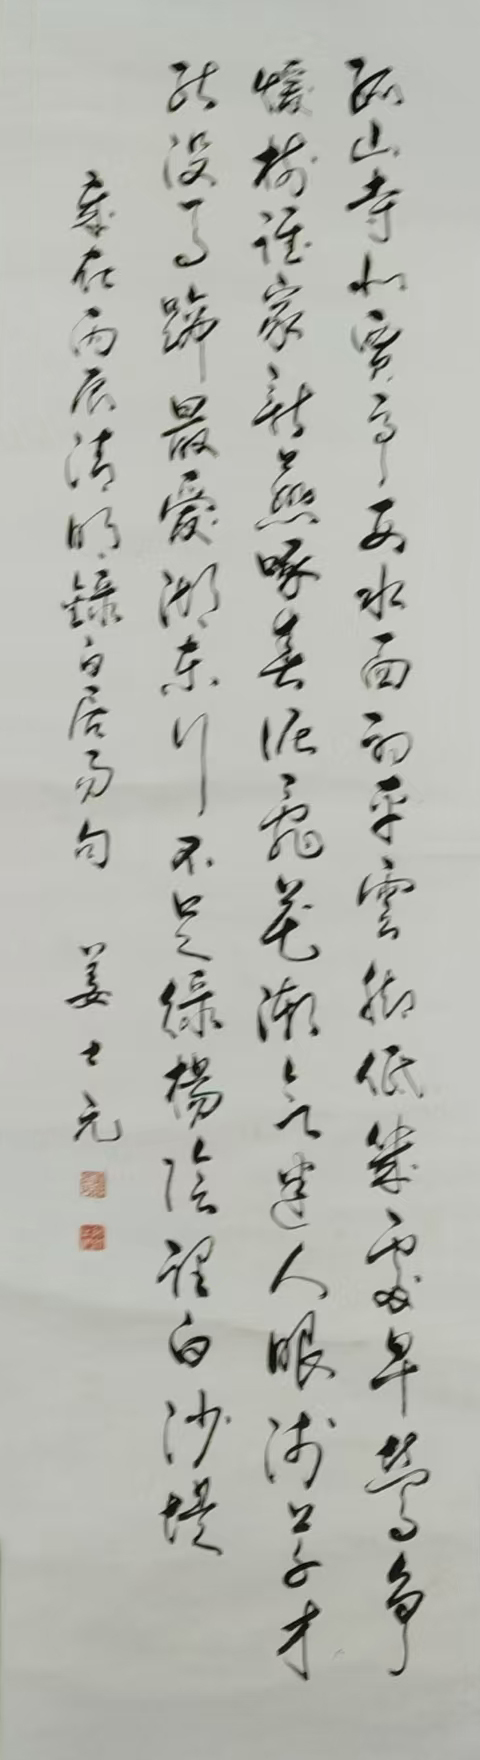 孤山寺北賈亭西水面初平雲腳低幾處早鶯爭
暖樹誰家新燕啄春泥亂花漸欲迷人眼淺草才
能沒馬蹄最愛湖東行不足綠楊陰裡白沙堤
歲在丙辰清明錄白居易句 姜士元